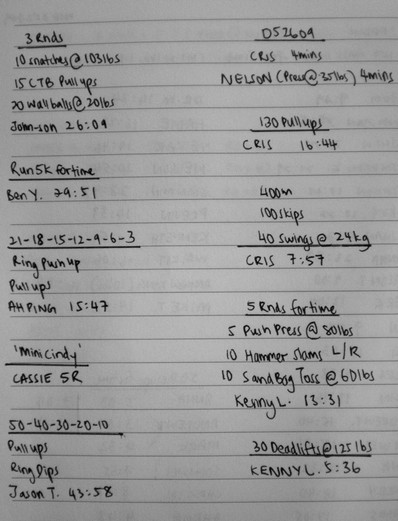 3 Rnds
10 snatches @ 103lbs
15 CTB Pull ups
20 wallballs @ 20lbs
John-son 26:09
Run 5K for time
Ben Y. 29:51
21-18-15-12-9-6-3
Ring Push up
Pull ups
AH PING 15:47
'Mini Cindy'
CASSIE 5R
50-40-30-20-10
Pull ups
Ring Dips
Jason T. 43:58
052609
CRIS 4mins
NELSON (Press @ 35lbs) 4mins
130 Pull ups
CRIS 16:44
400m
100 skips
40 Swings @ 24kg
CRIS 7:57
5 Rnds for time
5 Push Press @ 80lbs
10 Hammer slams L/R
10 Sand Bag Toss @ 60lbs
Kenny L. 13:31
30 Deadlifts @ 125lbs
KENNY L. 5:36